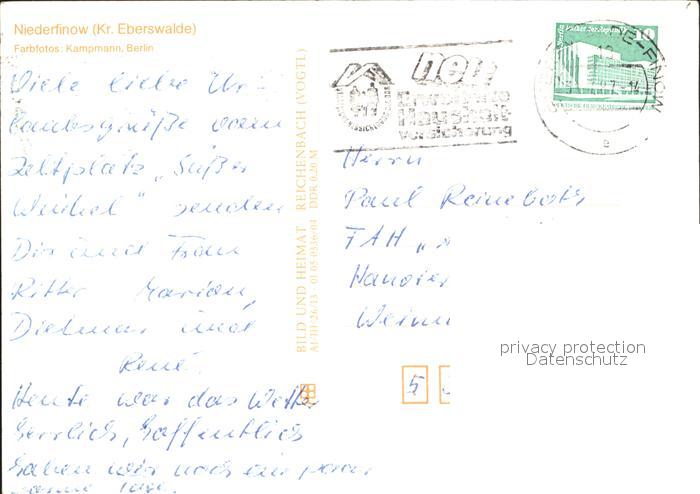 Niederfinow (Kr. Eberswalde)
Farbfotos: Kampmann, Berlin
Viele liebe Ur-
laubsgrüße vom
Zeltplatz „Süßer
Winkel" senden
Dir und Frau
Ritter Marion,
Dietmar und
René.
Heute war das Wetter
herrlich, hoffentlich
haben wir noch ein paar
Tage.
BILD UND HEIMAT REICHENBACH (VOGTL)
A1/III/26/13 01 05 0336/04 DDR 0,20 M
nen
Erweiterte
Haushalt-
versicherung
E-FINOW
e
10
Herrn
Paul Reinebots
FAH „
Weim
5
privacy protection
Datenschutz